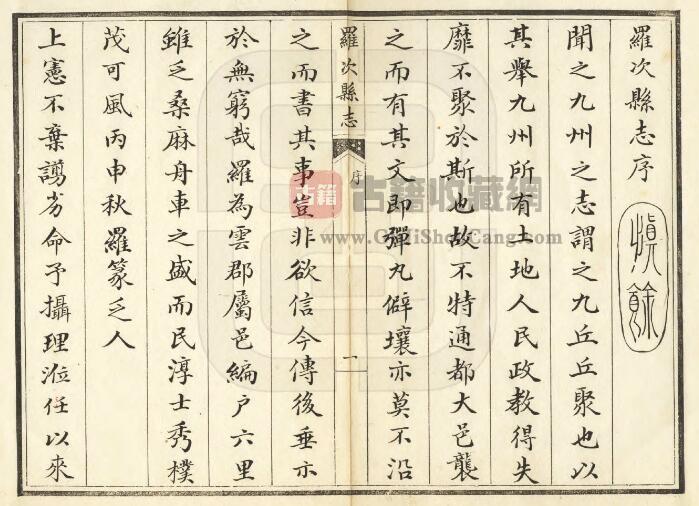 羅次縣志序
慎餘
聞之九州之志謂之九丘丘聚也以
其舉九州所有土地人民政教得失
靡不聚於斯也故不特通都大邑襲
之而有其文即彈丸僻壤亦莫不沿
羅次縣志
序
一
之而書其事豈非欲信今傳後垂示
於無窮哉羅為雲郡屬邑編户六里
雖乏桑麻舟車之盛而民淳士秀樸
茂可風丙申秋羅篆乏人
上憲不棄譾劣命予攝理涖任以來
古籍
古籍收藏網
www.GuJiShouCang.com